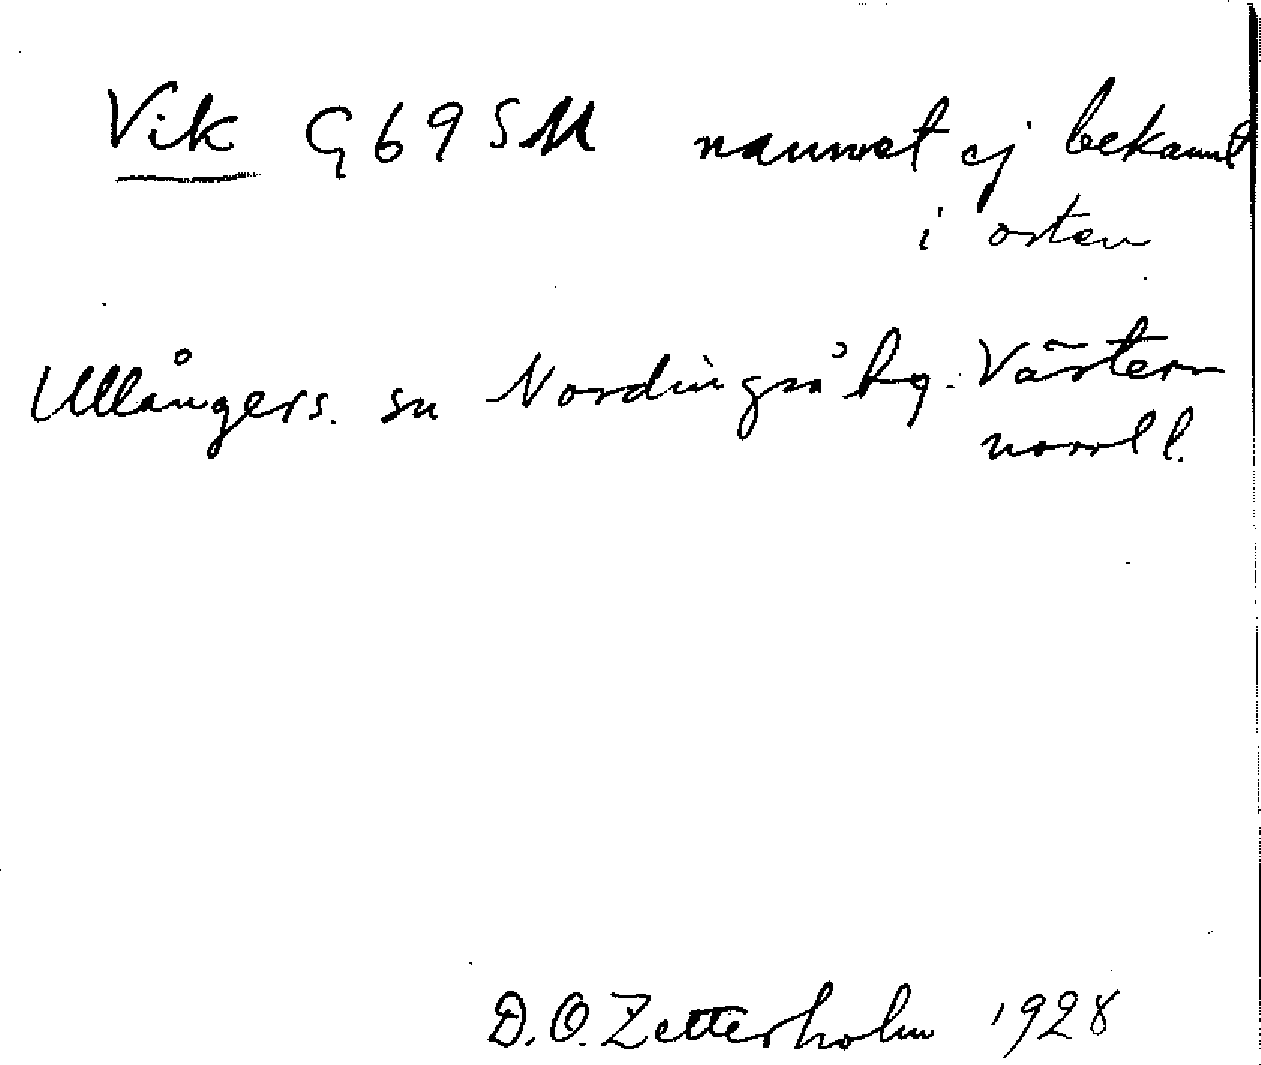 Vik G69SM namnet ej bekannt
i orten
Ullångers. sn Nordingrå tg. Västern
norrl l.
D.O. Zetterholm 1928